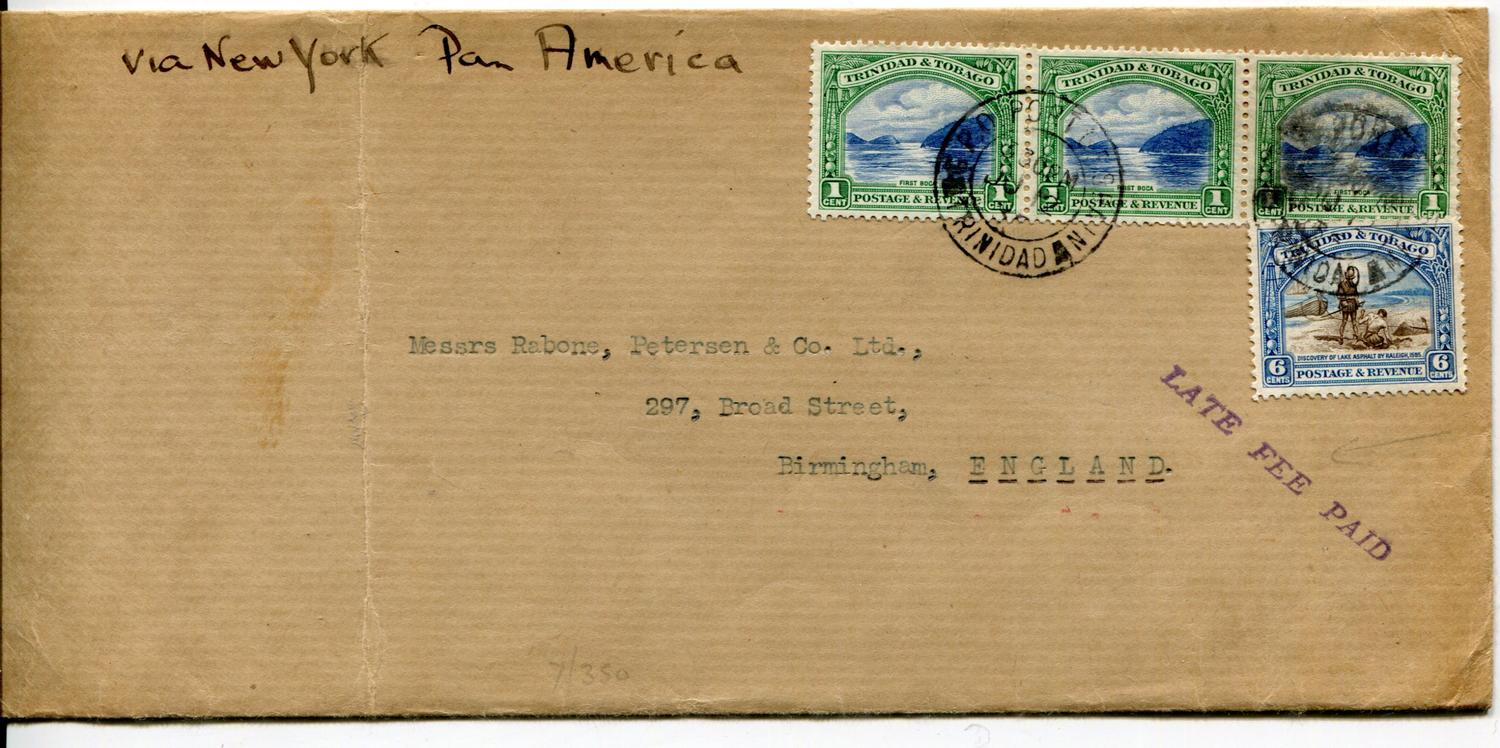 via New York Pan America
TRINIDAD & TOBAGO
FIRST BOCA
1 CENT POSTAGE & REVENUE 1 CENT
TRINIDAD & TOBAGO
FIRST BOCA
1 POSTAGE & REVENUE 1 CENT
TRINIDAD & TOBAGO
FIRST BOCA
1 POSTAGE & REVENUE 1 CENT
TRINIDAD
TRINIDAD & TOBAGO
DISCOVERY OF LAKE ASPHALT BY RALEIGH, 1595.
6 CENTS POSTAGE & REVENUE 6 CENTS
Messrs Rabone, Petersen & Co. Ltd.,
297, Broad Street,
Birmingham, ENGLAND.
LATE FEE PAID
7/350